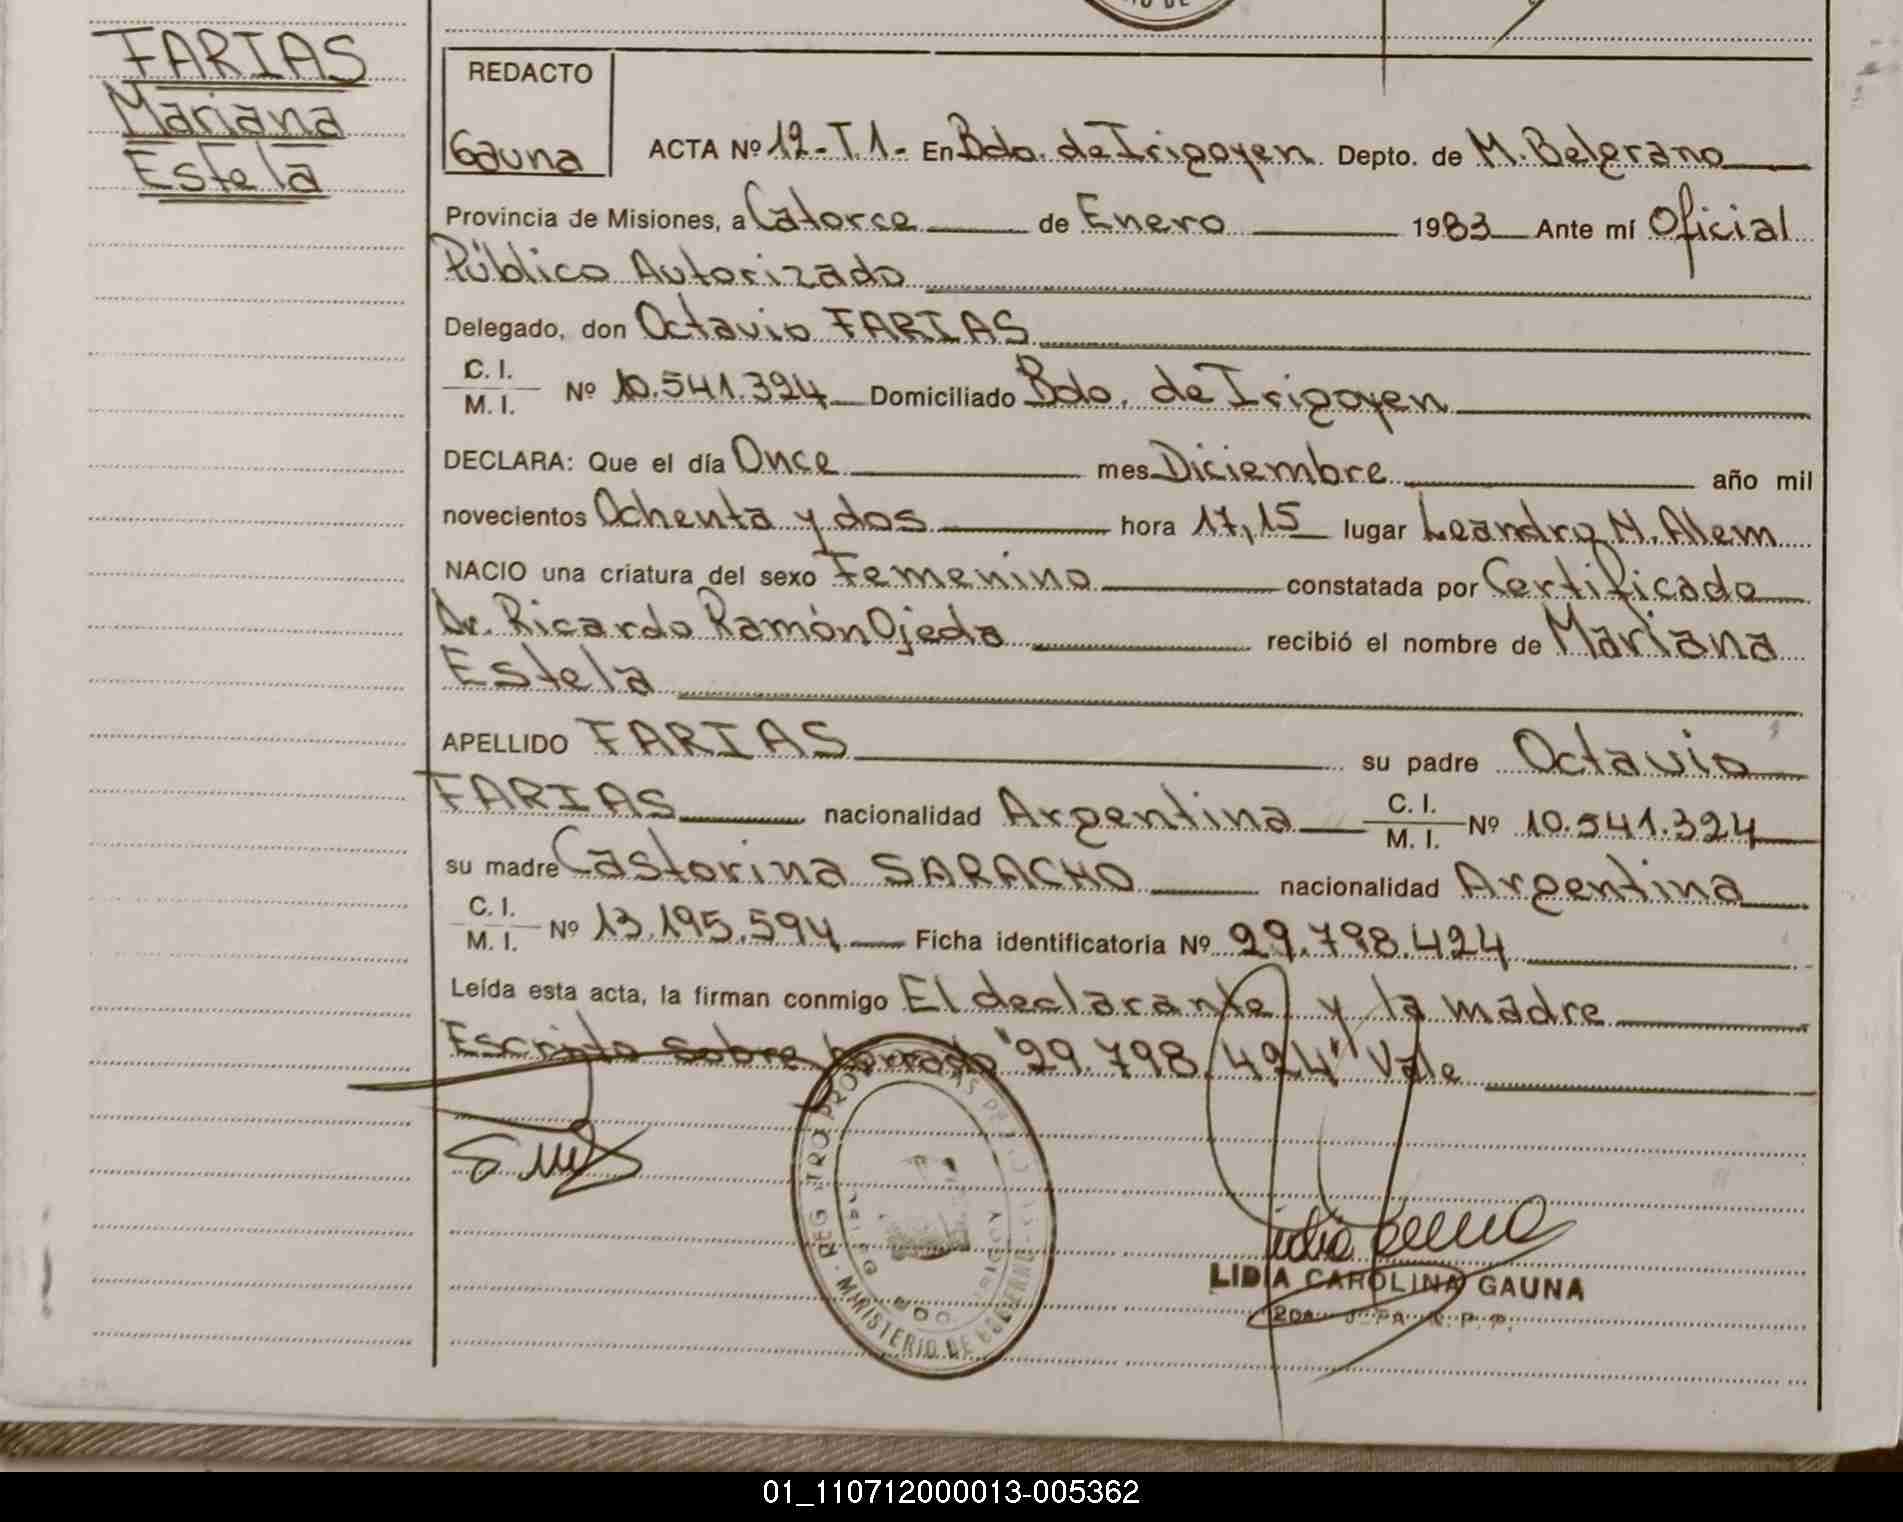 FARIAS
Mariana
Estela
REDACTO
Gauna
ACTA Nº 12-T.1- En Bdo. de Irigoyen Depto. de M. Belgrano
Provincia de Misiones, a Catorce de Enero 1983 Ante mí Oficial
Público Autorizado
Delegado, don Octavio FARIAS
C. I.
M. I. Nº 10.541.324 Domiciliado Bdo. de Irigoyen
DECLARA: Que el día Once mes Diciembre año mil
novecientos Ochenta y dos hora 17,15 lugar Leandro N. Alem
NACIO una criatura del sexo Femenino constatada por Certificado
Dr. Ricardo Ramón Ojeda recibió el nombre de Mariana
Estela
APELLIDO FARIAS su padre Octavio
FARIAS nacionalidad Argentina C. I. M. I. Nº 10.541.324
su madre Castorina SARACHO nacionalidad Argentina
C. I.
M. I. Nº 13.195.594 Ficha identificatoria Nº 29.798.424
Leída esta acta, la firman conmigo El declarante y la madre
Escrito sobre borrado "29.798.424" Vale
MINISTERIO DE GOBIERNO
LIDIA CAROLINA GAUNA
01_110712000013-005362